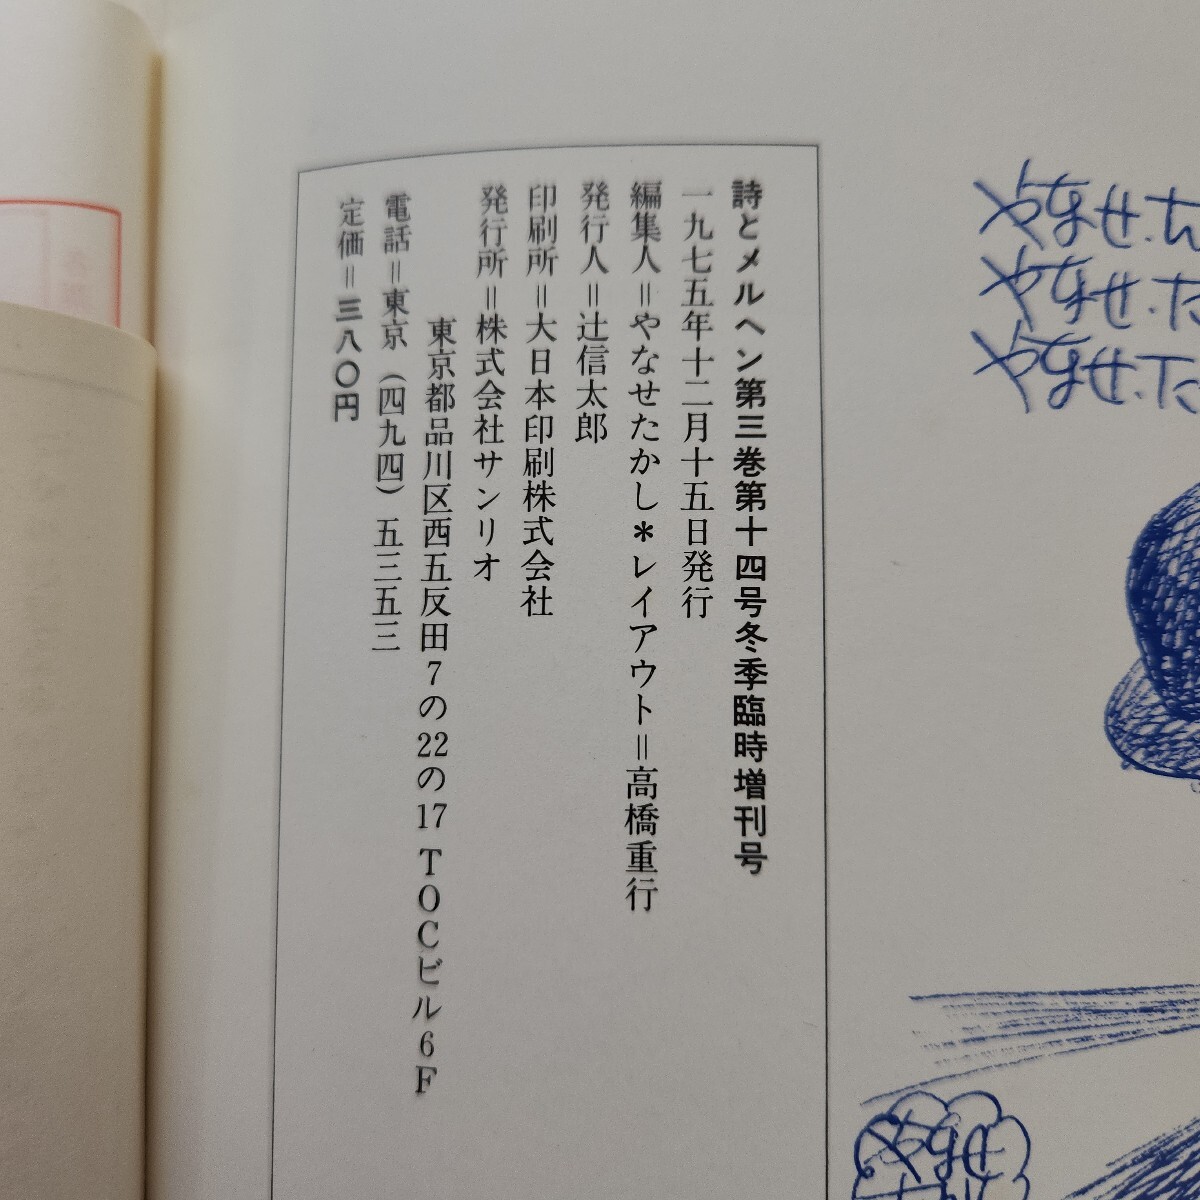 やなせ・た
やなせ・た
やなせ・た
やなせ
詩とメルヘン第三巻第十四号冬季臨時増刊号
一九七五年十二月十五日発行
編集人＝やなせたかし＊レイアウト＝高橋重行
発行人＝辻信太郎
印刷所＝大日本印刷株式会社
発行所＝株式会社サンリオ
東京都品川区西五反田7の22の17 TOCビル6F
電話＝東京（四九四）五三五三
定価＝三八〇円